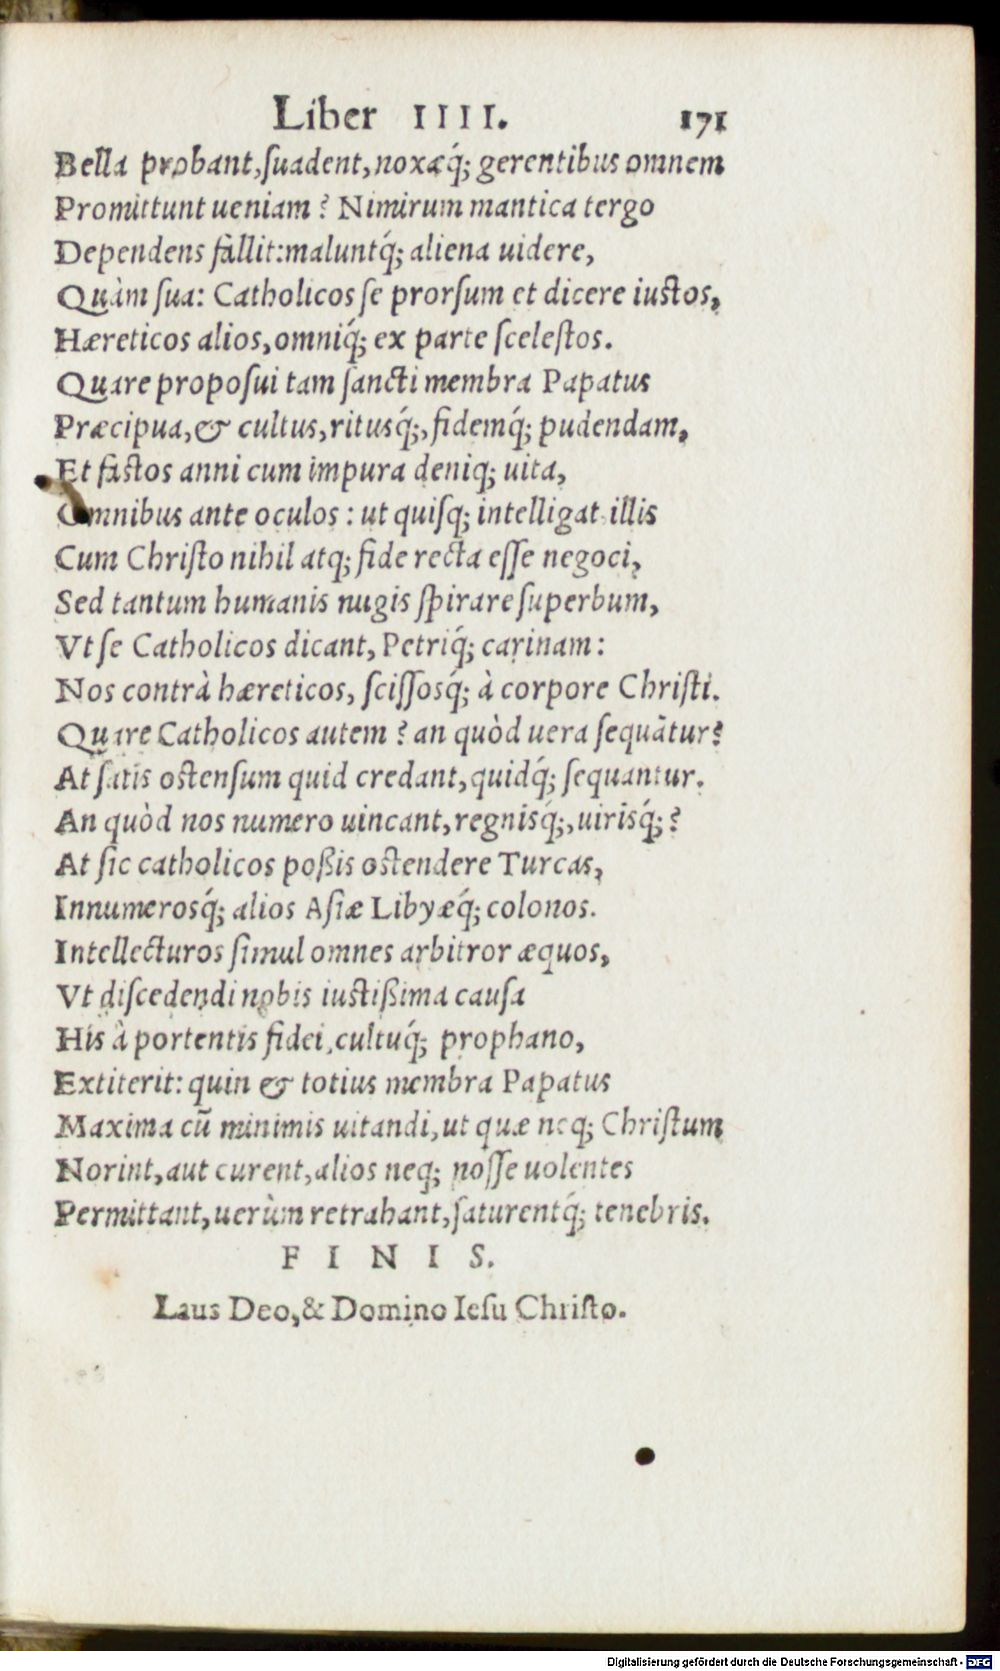 Liber IIII. 171
Bella probant, ſuadent, noxæq́; gerentibus omnem
Promittunt ueniam? Nimirum mantica tergo
Dependens fallit: maluntq́; aliena uidere,
Quàm ſua: Catholicos ſe prorſum et dicere iustos,
Hæreticos alios, omniq́; ex parte ſcelestos.
Quare propoſui tam ſancti membra Papatus
Præcipua, & cultus, ritusq́;, fidemq́; pudendam,
Et fastos anni cum impura deniq; uita,
Omnibus ante oculos: ut quiſq; intelligat illis
Cum Chriſto nihil atq; fide recta eſſe negoci,
Sed tantum humanis nugis ſpirare ſuperbum,
Vt ſe Catholicos dicant, Petriq́; carinam:
Nos contrà hæreticos, ſciſſosq́; à corpore Chriſti.
Quare Catholicos autem? an quòd uera ſequātur?
At ſatis ostenſum quid credant, quidq́; ſequantur.
An quòd nos numero uincant, regnisq́;, uirisq́;?
At ſic catholicos poßis ostendere Turcas,
Innumerosq́; alios Aſiæ Libyæq́; colonos.
Intellecturos ſimul omnes arbitror æquos,
Vt diſcedendi nobis iustißima cauſa
His à portentis fidei, cultuq́; prophano,
Extiterit: quin & totius membra Papatus
Maxima cū minimis uitandi, ut quæ neq; Chriſtum
Norint, aut curent, alios neq; noſſe uolentes
Permittant, uerùm retrahant, ſaturentq́; tenebris.
F I N I S.
Laus Deo, & Domino Ieſu Chriſto.
Digitalisierung gefördert durch die Deutsche Forschungsgemeinschaft - DFG